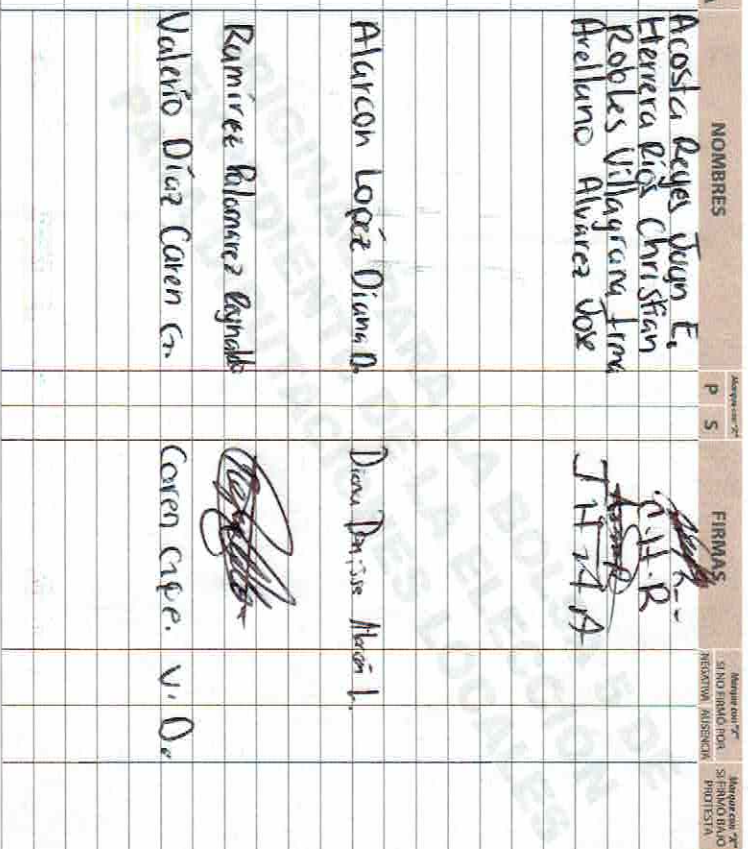 NOMBRES
Marque con "X"
P S
FIRMAS
Marque con "X" SI NO FIRMÓ POR
NEGATIVA AUSENCIA
Marque con "X" SI FIRMÓ BAJO PROTESTA
Acosta Reyes Juan E.
Herrera Ríos Christian C.H.R
Robles Villagrana Irma
Arellano Alvarez Jose J H A A
Alarcon Lopéz Diana D. Diana Denisse Alarcón L.
Ramírez Palomarez Raynaldo
Valerio Díaz Caren G. Caren Gpe. V.D.
ORIGINAL PARA LA BOLSA 5 DE
EXPEDIENTE DE LA ELECCIÓN
PARA DIPUTACIONES LOCALES